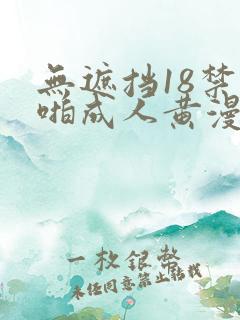 無遮挡18禁
啪成人黄漫
一枚银幣
未经同意禁止转载